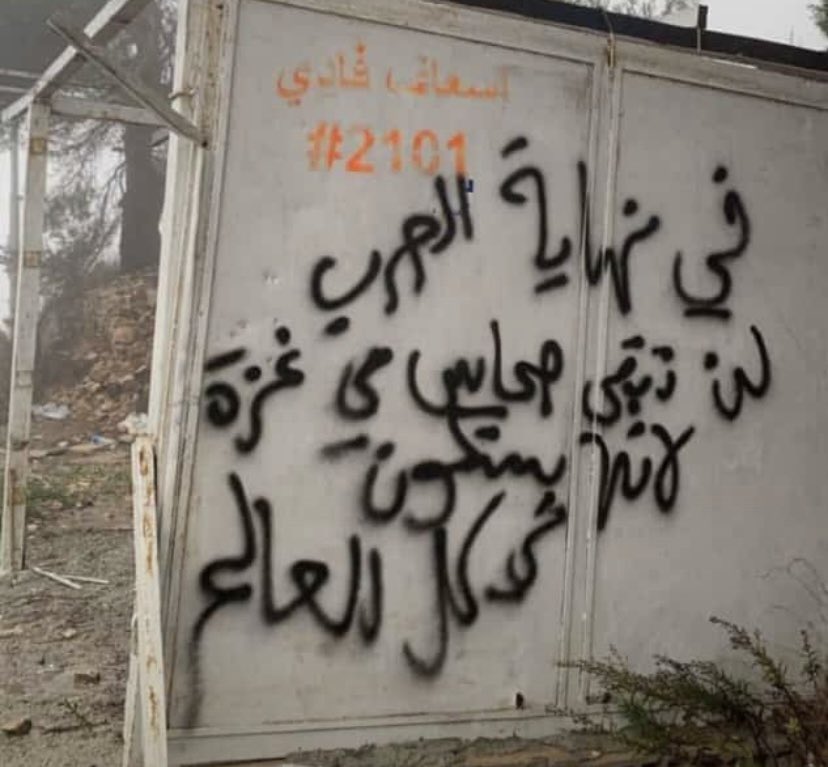 اسعاف فادي
#2101
في نهاية الحرب
لن تبقى حماس في غزة
لانها ستكون
في كل العالم